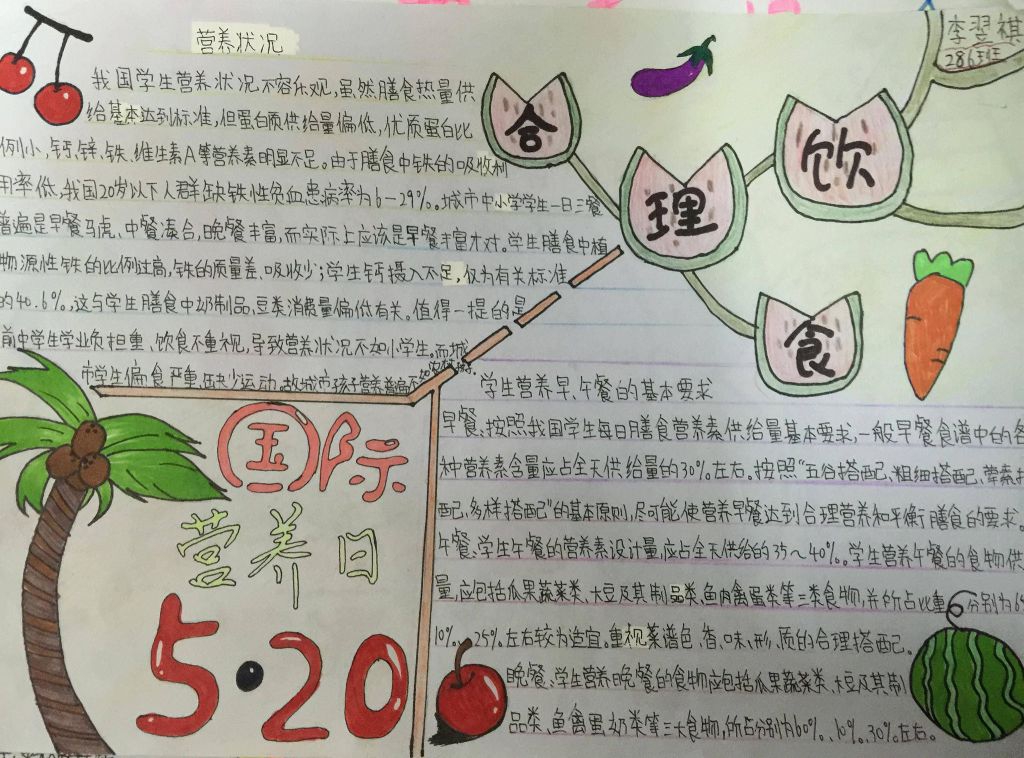 营养状况
我国学生营养状况不容乐观,虽然膳食热量供
给基本达到标准,但蛋白质供给量偏低,优质蛋白比
例小,钙、锌、铁、维生素A等营养素明显不足。由于膳食中铁的吸收利
用率低,我国20岁以下人群缺铁性负血患病率为6-29%。城市中小学学生一日三餐
普遍是早餐马虎、中餐凑合,晚餐丰富,而实际上应该是早餐丰富才对。学生膳食中植
物源性铁的比例过高,铁的质量差、吸收少;学生钙摄入不足,仅为有关标准
的40.6%,这与学生膳食中奶制品、豆类消费量偏低有关。值得一提的是
前中学生学业负担重、饮食不重视,导致营养状况不如小学生。而城
市学生偏食严重,缺少运动,故城市孩子营养普遍不如农村孩子。
合理饮食
李翌祺
286班
国际
营养日
5·20
学生营养早、午餐的基本要求
早餐、按照我国学生每日膳食营养素供给量基本要求,一般早餐食谱中的各
种营养素含量应占全天供给量的30%左右。按照“五谷搭配、粗细搭配、荤素搭
配、多样搭配”的基本原则,尽可能使营养早餐达到合理营养和平衡膳食的要求。
午餐、学生午餐的营养素设计量应占全天供给的35~40%。学生营养午餐的食物供
量,应包括瓜果蔬菜类、大豆及其制品类、鱼肉禽蛋类等三类食物,并所占比重分别为
10%、25%左右较为适宜。重视菜谱色、香、味、形、质的合理搭配。
晚餐、学生营养晚餐的食物应包括瓜果蔬菜类、大豆及其制
品类、鱼禽蛋奶类等三大食物,所占分别为60%、10%、30%左右。